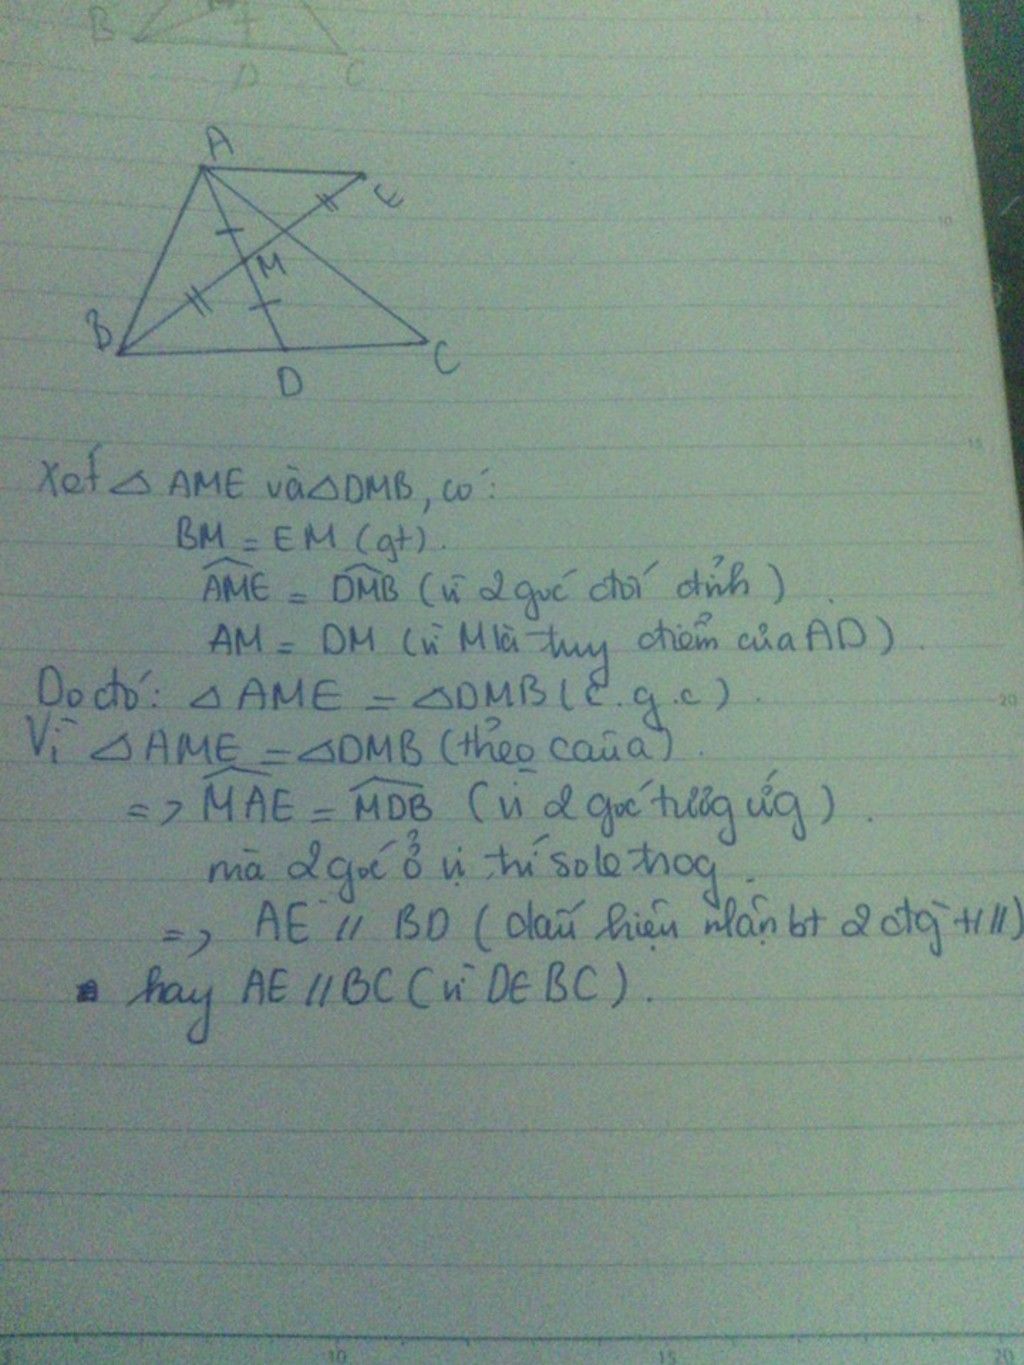 B
D
C
A
E
M
B
D
C
10
15
Xét △ AME và △DMB, có:
BM = EM (gt).
AME = DMB (vì 2 góc đối đỉnh).
AM = DM (vì M là trug điểm của AD).
20
Do đó: △ AME = △DMB (c.g.c).
Vì △ AME = △DMB (theo câu a).
=> MAE = MDB (vì 2 góc tương ứg).
mà 2 góc ở vị trí so le trog.
=> AE // BD (dấu hiệu nhận bt 2 đtg //)
hay AE // BC (vì D∈BC).
10
15
20